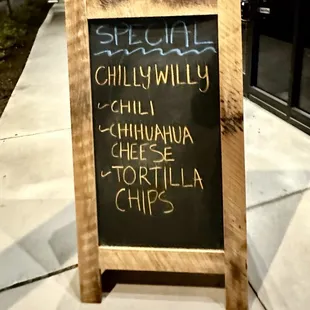 SPECIAL
CHILLY WILLY
✓CHILI
✓CHIHUAHUA
CHEESE
✓TORTILLA
CHIPS